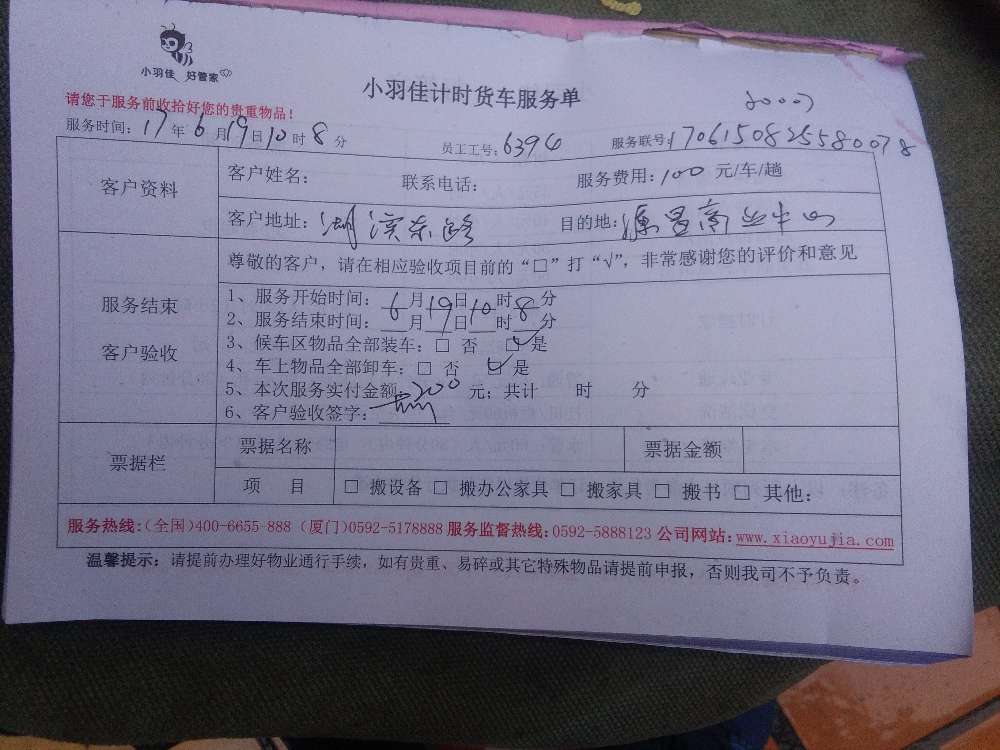 小羽佳 好管家
小羽佳计时货车服务单
请您于服务前收拾好您的贵重物品！
服务时间：17年6月19日10时8分 员工工号：6394 服务联号：1706150825580078
客户资料
客户姓名： 联系电话： 服务费用：100元/车/趟
客户地址：湖滨东路 目的地：源昌商业中心
服务结束
客户验收
尊敬的客户，请在相应验收项目前的“□”打“√”，非常感谢您的评价和意见
1、服务开始时间：6月19日10时8分
2、服务结束时间：__月__日__时__分
3、候车区物品全部装车：□ 否 ☑ 是
4、车上物品全部卸车：□ 否 ☑ 是
5、本次服务实付金额：200元；共计 时 分
6、客户验收签字：
票据栏
票据名称 票据金额
项 目 □ 搬设备 □ 搬办公家具 □ 搬家具 □ 搬书 □ 其他：
服务热线：（全国）400-6655-888（厦门）0592-5178888 服务监督热线：0592-5888123 公司网站：www.xiaoyujia.com
温馨提示：请提前办理好物业通行手续，如有贵重、易碎或其它特殊物品请提前申报，否则我司不予负责。